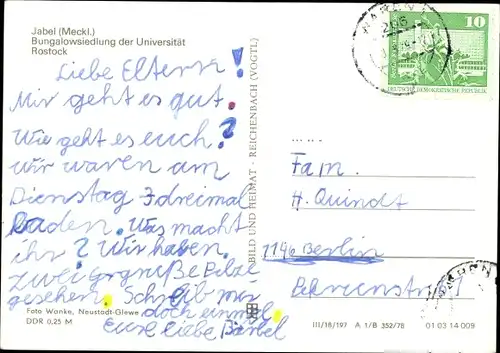 Jabel (Meckl.)
Bungalowsiedlung der Universität
Rostock
Liebe Eltern!
Mir geht es gut.
Wie geht es euch?
Wir waren am
Dienstag 3 dreimal
baden. Was macht
ihr? Wir haben
zwei große Pilze
gesehen. Schreib mir
doch einmal
Eure liebe Bärbel
Foto Wanke, Neustadt-Glewe
DDR 0,25 M
BILD UND HEIMAT · REICHENBACH (VOGTL)
WAREN
206
10
DEUTSCHE DEMOKRATISCHE REPUBLIK
Fam.
H. Quindt
1146 Berlin
III/18/197 A 1/B 352/78 01 03 14 009